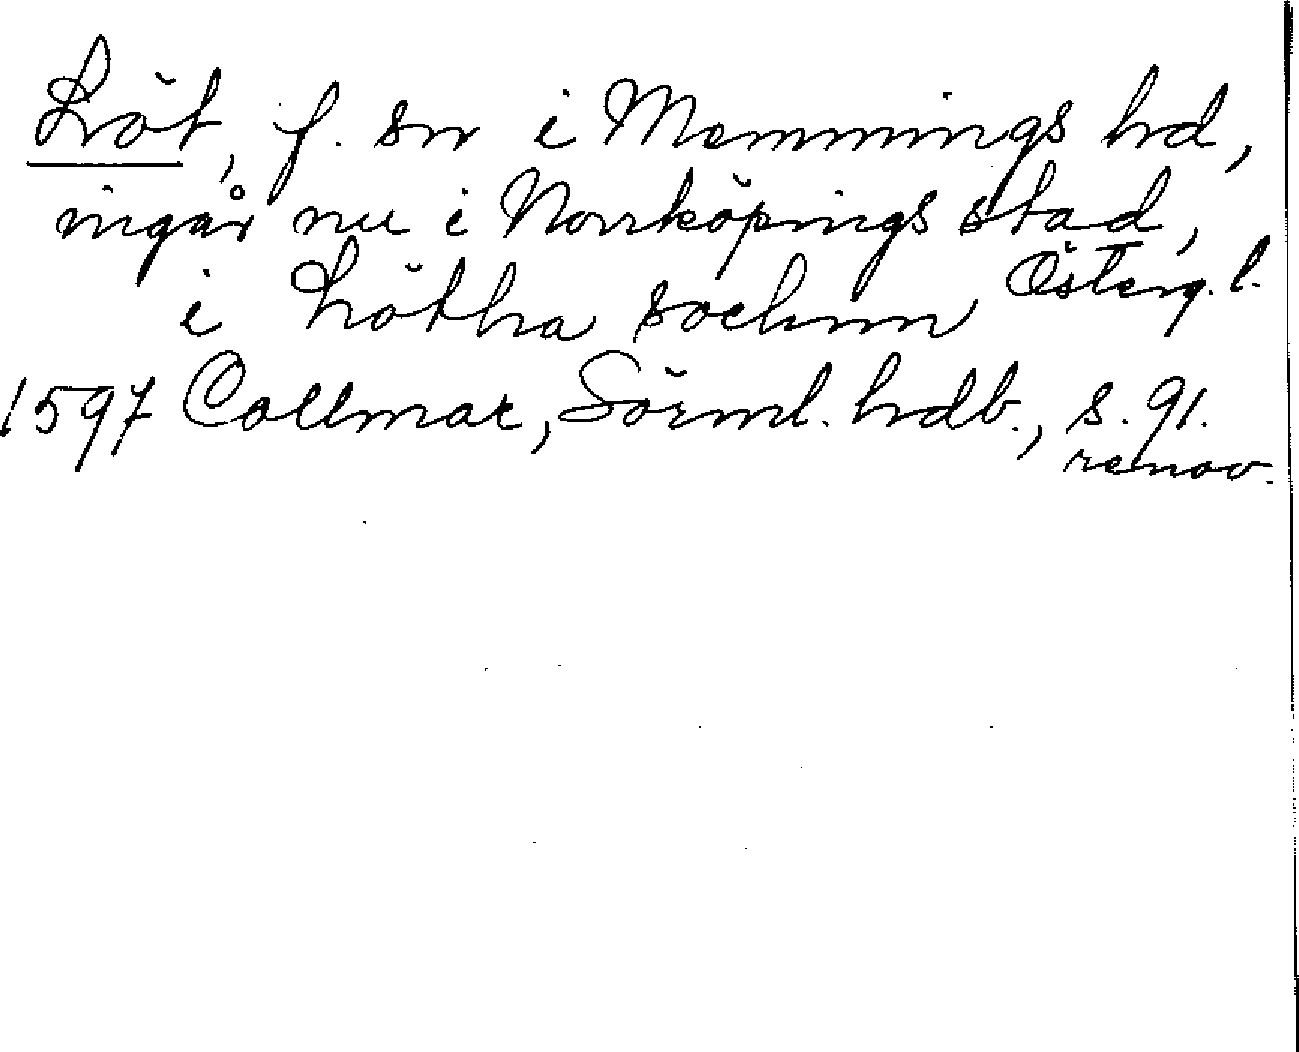 Löt, f. sn i Memmings hd,
ingår nu i Norrköpings stad,
Österg. l.
i Lötha sochnn
1597 Collmar, Sörml. hdb., s. 91.
renov.